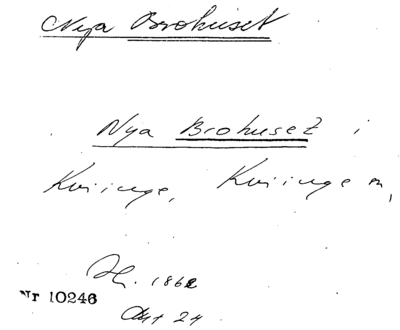 Nya Brohuset
Nya Brohuset i
Kviinge, Kviinge sn,
1862
Nr 10246
Akt 24